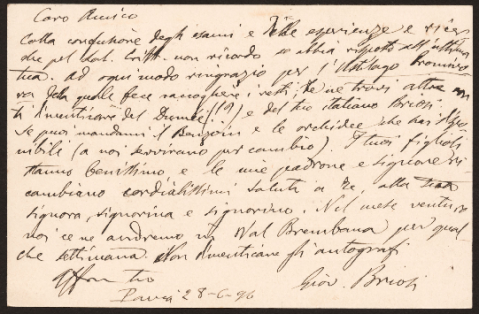 Caro Amico
Colla confusione degli esami e delle esperienze e ricer
che pel dot. non ricordo se abbia risposto all'ultima
tua. Ad ogni modo ringrazio per l'Ustilago bromivo
ra della quale fece raccogliere i resti. Se ne trovi altre non
ti dimenticare del (!!) e del tuo italiano Briosi.
Se puoi mandami il Benzoin e le orchidee che hai dispo
nibili (a noi servirano per cambio). I tuoi figlioli
stanno benissimo e le mie padrone e signore ri
cambiano cordialissimi saluti a te, alla tua
signora, signorina e signorino. Nel mese ventu
noi ce ne andremo in Val Brembana per qual
che settimana. Non dimenticare gli autografi
Aff tuo
Giov. Briosi
Pavia 28-6-96